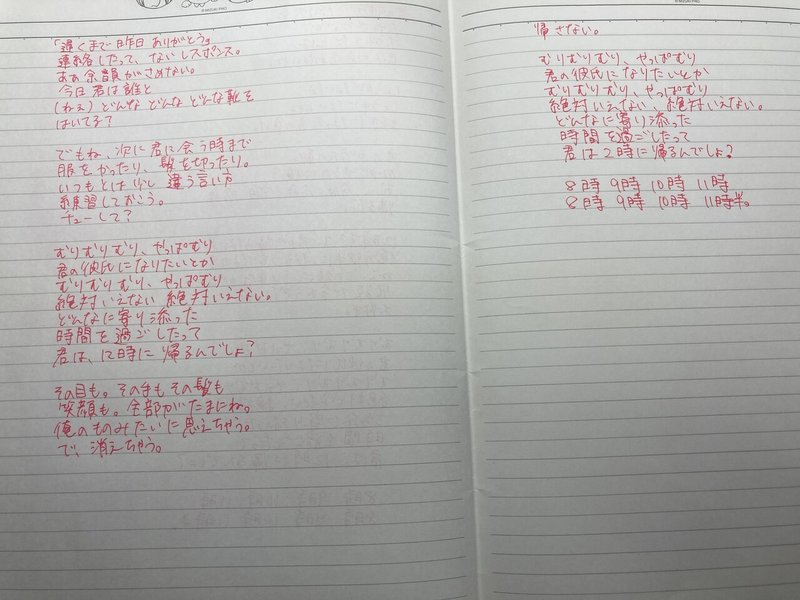 © MIZUKI PRO
「遅くまで昨日ありがとう」
連絡したって、ないレスポンス。
ああ余韻がさめない。
今日君は誰と
(ねぇ)どんなどんなどんな靴を
はいてる?
でもね、次に君に会う時まで
服をかったり、髪を切ったり。
いつもとは少し違う言い方
練習しておこう。
チューして?
むりむりむり、やっぱむり
君の彼氏になりたいとか
むりむりむり、やっぱむり
絶対いえない 絶対いえない。
どんなに寄り添った
時間を過ごしたって
君は、12時に帰るんでしょ?
その目も。その手もその髪も
笑顔も。全部がたまにね。
俺のものみたいに思えちゃう。
で、消えちゃう。
© MIZUKI PRO
帰さない。
むりむりむり、やっぱむり
君の彼氏になりたいとか
むりむりむり、やっぱむり
絶対いえない、絶対いえない。
どんなに寄り添った
時間を過ごしたって
君は2時に帰るんでしょ?
8時 9時 10時 11時
8時 9時 10時 11時半。